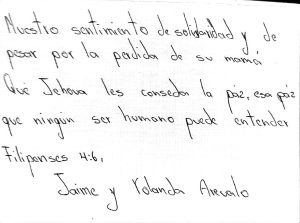 Nuestro sentimiento de solidaridad y de
pesar por la perdida de su mamá
Que Jehova les conseda la paz, esa paz
que ningun ser humano puede entender
Filipenses 4:6,
Jaime y Yolanda Arevalo